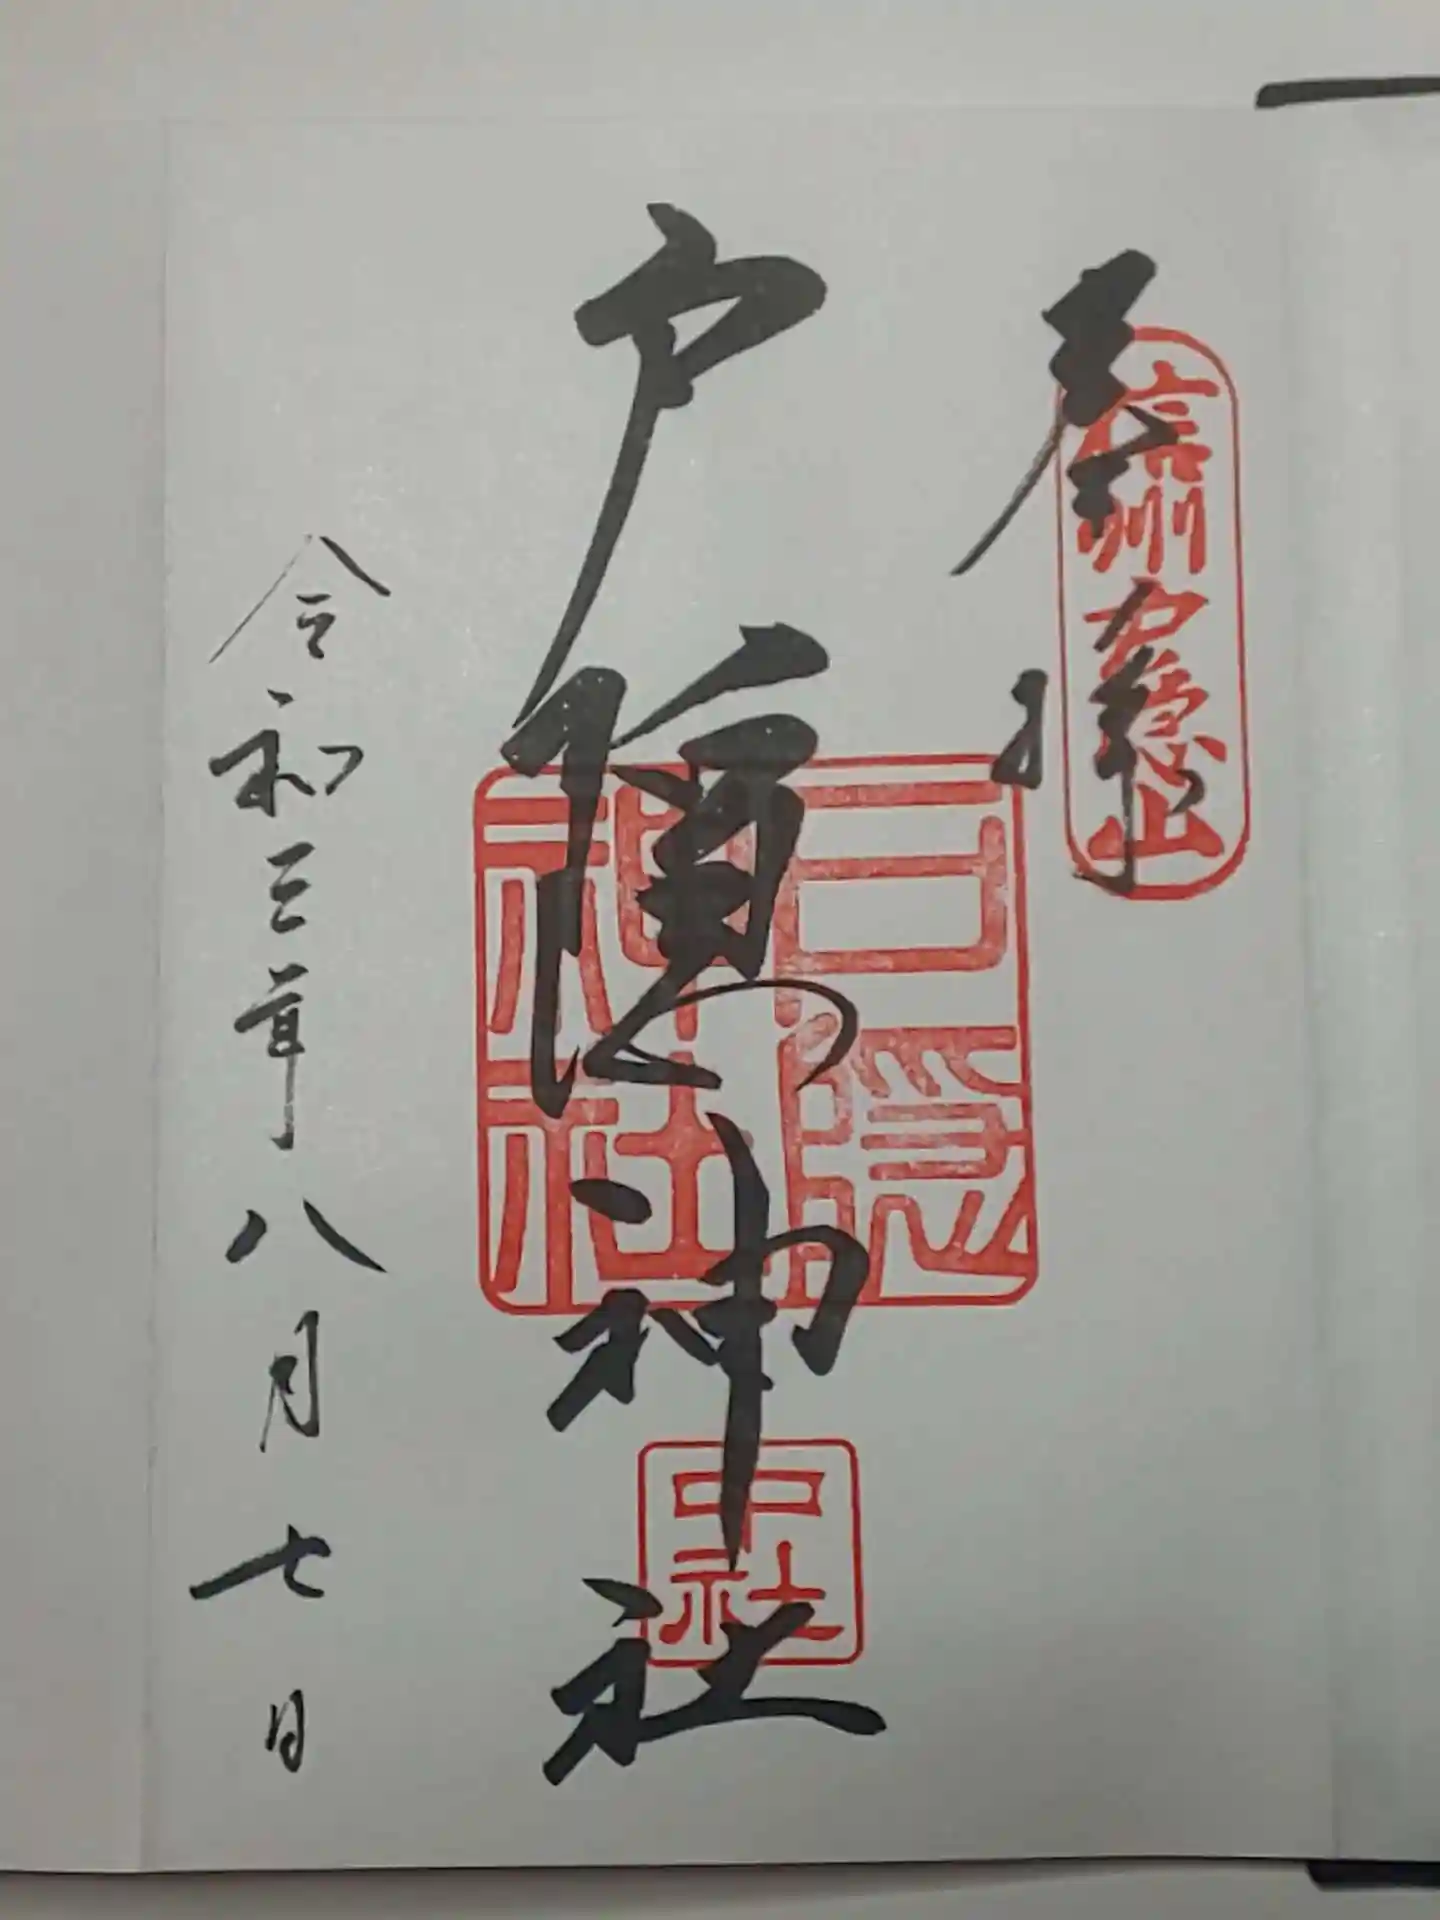 奉拝
信州戸隠山
戸隠神社
戸隠神社
中社
令和三年八月七日